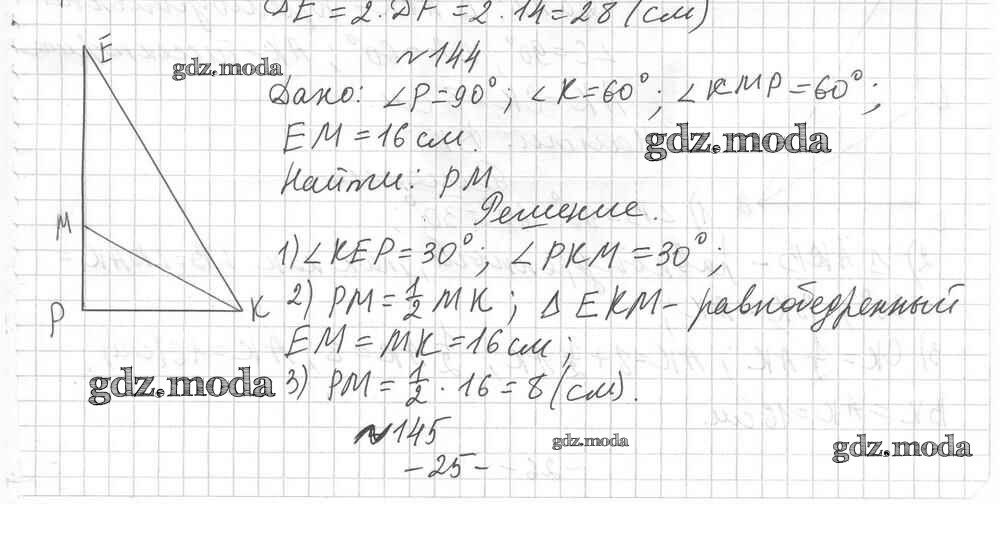 DE = 2 · DF = 2 · 14 = 28 (см)
№144
E
gdz.moda
Дано: ∠P = 90°; ∠K = 60°; ∠KMP = 60°;
EM = 16 см.
gdz.moda
Найти: PM
Решение.
M
1) ∠KEP = 30°; ∠PKM = 30°;
P
K
2) PM = 1/2 MK; Δ EKM - равнобедренный
EM = MK = 16 см;
gdz.moda
3) PM = 1/2 · 16 = 8 (см).
№145
gdz.moda
gdz.moda
- 25 -